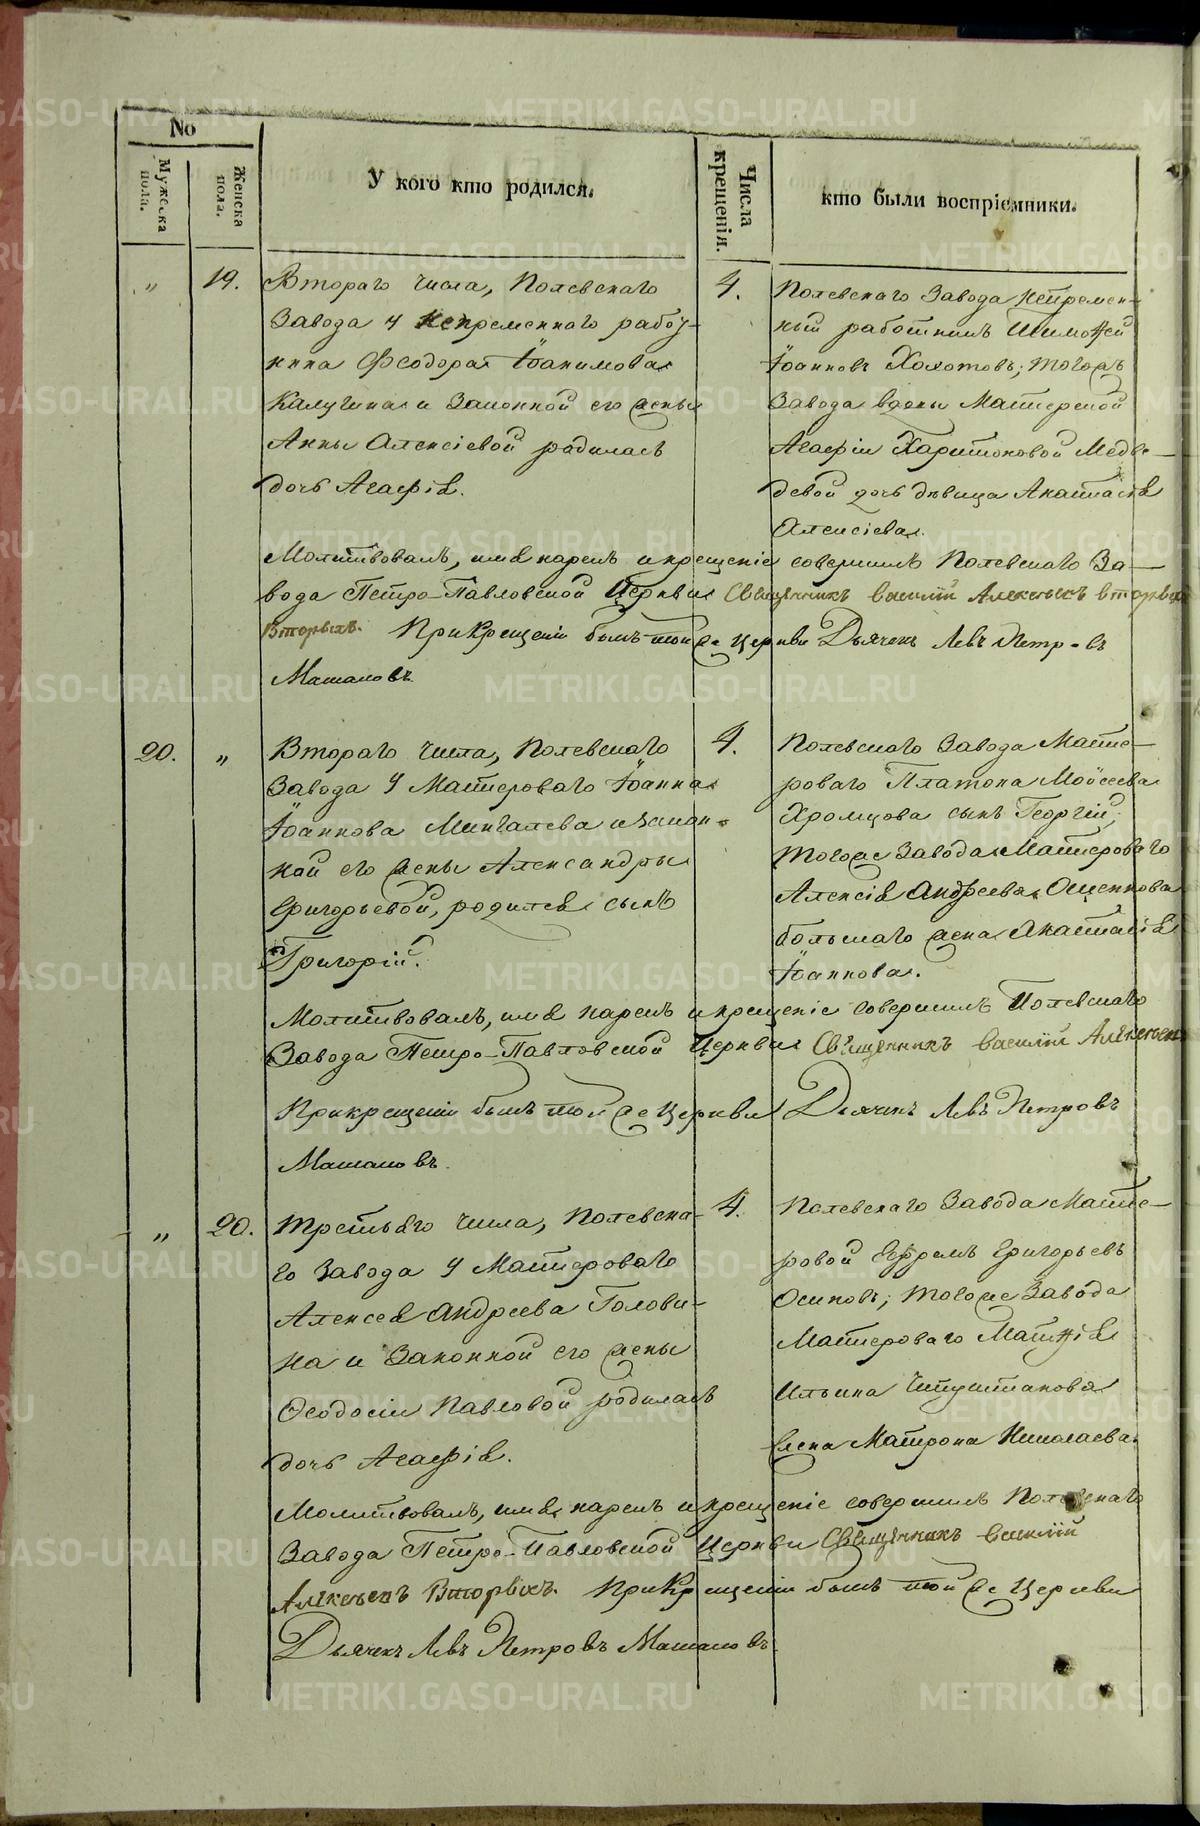 No
Мужеска пола.
Женска пола.
У кого кто родился.
Числа крещенія.
кто были воспріемники.
„ 19.
Втораго числа, Полевскаго
Завода у непременнаго работ-
ника Феодора Іоакимова
Калугина и Законной его жены
Анны Алексіевой родилась
дочь Агафія.
4.
Полевскаго Завода непремен-
ный работникъ Тимофей
Іоанновъ Холотовъ; тогожъ
Завода вдовы Мастерской
Агафіи Харитоновой Медве-
девой дочь девица Анастасія
Алексіева.
Молитвовалъ, имя нарекъ и крещеніе совершилъ Полевскаго За-
вода Петро-Павловской Церкви Священникъ Василій Алексѣевъ Вторыхъ
Вторыхъ. При Крещеніи былъ той же Церкви Дьячекъ Левъ Петровъ
Машановъ.
20. „
Втораго числа, Полевскаго
Завода у Мастероваго Іоанна
Іоаннова Мингалева и Закон-
ной его жены Александры
Григорьевой, родился сынъ
Григорій.
4.
Полевскаго Завода Масте-
роваго Платона Мойсеева
Хромцова сынъ Георгій;
тогоже Завода Мастероваго
Алексія Андреева Ощепкова
большаго жена Анастасія
Іоаннова.
Молитвовалъ, имя нарекъ и крещеніе совершилъ Полевскаго
Завода Петро-Павловской Церкви Священникъ Василій Алексѣевъ
При крещеніи былъ той же Церкви Дьячекъ Левъ Петровъ
Машановъ.
„ 20.
Третьяго числа, Полевска-
го Завода у Мастероваго
Алексея Андреева Голови-
на и Законной его жены
Феодосіи Павловой родилась
дочь Агафія.
4.
Полевскаго Завода Масте-
ровой Ефремъ Григорьевъ
Осиповъ; тогоже Завода
Мастероваго Матфія
Ильина
жена Матрона Николаева.
Молитвовалъ, имя нарекъ и крещеніе совершилъ Полевскаго
Завода Петро-Павловской Церкви Священникъ Василій
Алексѣевъ Вторыхъ. При Крещеніи былъ той же Церкви
Дьячекъ Левъ Петровъ Машановъ.
METRIKI.GASO-URAL.RU